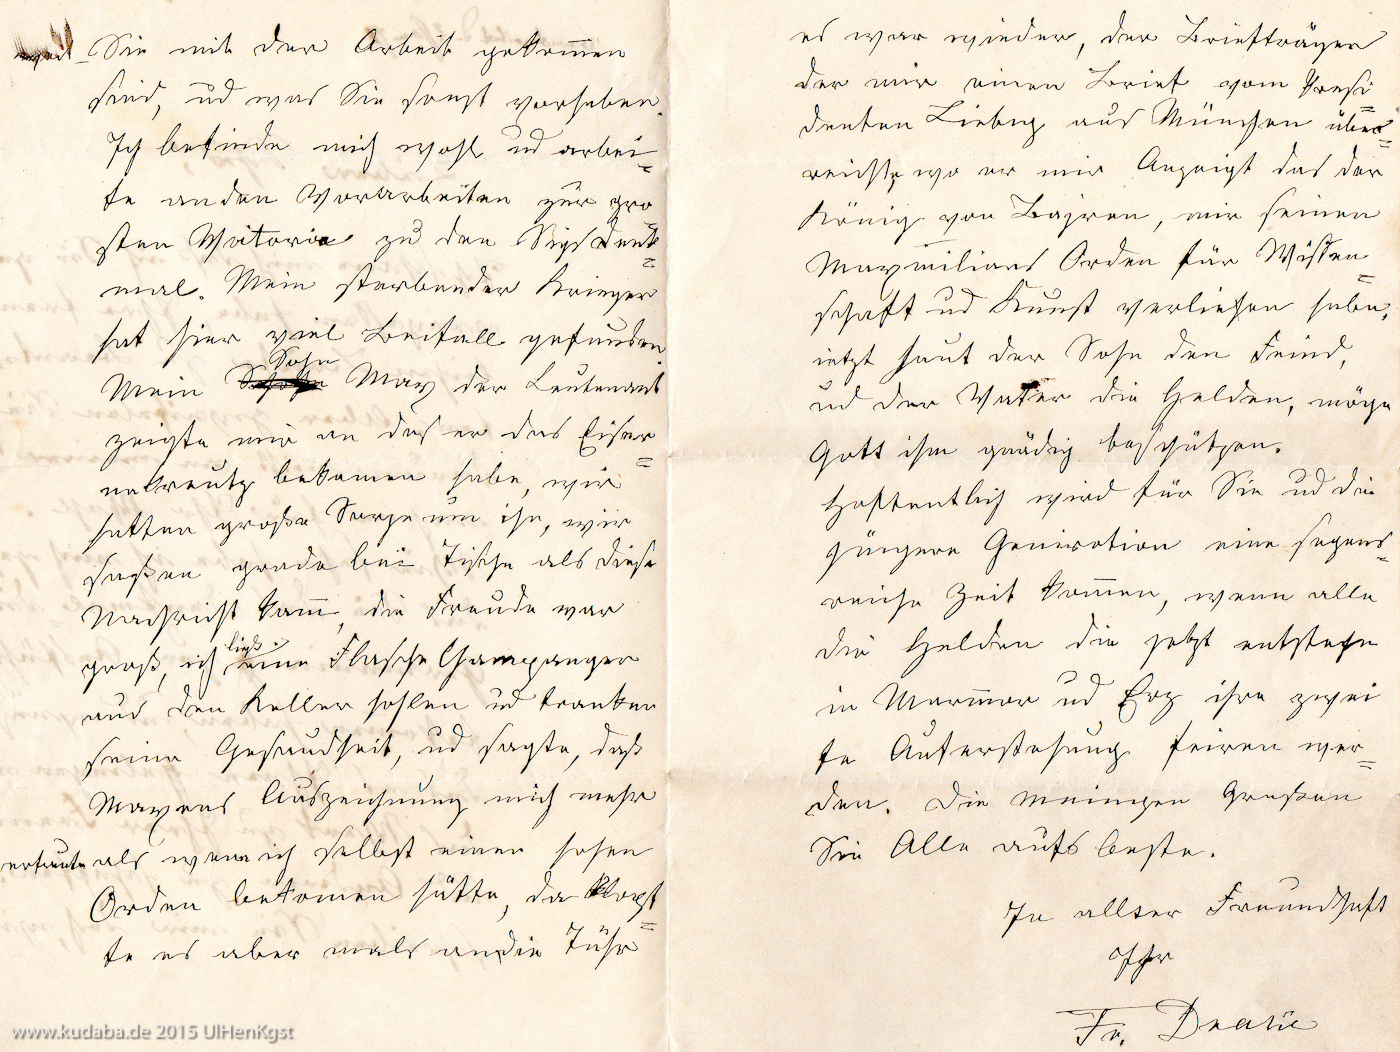 Sie mit der Arbeit gekom̅en
sind, ud was Sie sonst vorhaben.
Ich befinde mich wohl ud arbei=
te an den Vorarbeiten zur grö
sten Vitoria zu den Sigsdenk=
mal. Mein sterbender Krieger
hat hier viel Beifall gefunden.
Sohn
Mein Max der Leutenant
zeigte mir an das er das Eiser=
nekreutz bekomen habe, wir
hatten große Sorge um ihn, wir
saßen grade bei Tische als diese
Nachricht kam̅, die Freude war
ließ
groß, ich eine Flasche Champanger
aus den Keller hohlen ud tranken
seine Gesundheit, ud sagte, daß
Maxens Auszeichnung mich mehr
erfreute als wenn ich selbst einen hohen
Orden bekomen hätte, da klopf=
te es aber mals an die Tühr
es war wieder, der Briefträger
der mir einen Brief vom Presi=
denten Liebig aus München über=
reichte, wo er mir Anzeigt das der
König von Bajren, mir seinen
Maxmilians Orden für Wissen=
schaft ud Kunst verliehen habe,
ietzt haut der Sohn den Feind,
ud der Vater die Helden, möge
Gott ihm gnädig beschützen.
Hoffentlich wird für Sie ud die
jüngere Geniration eine segens=
reiche Zeit kom̅en, wenn alle
die Helden die jetzt entstehn
in Marm̅or ud Erz ihre zwei
te Auferstehung feiren wer=
den. Die meinigen Grüßen
Sie Alle aufs beste.
In allter Freundschaft
Ihr
Fr. Drake
www.kudaba.de 2015 UlHenKgst